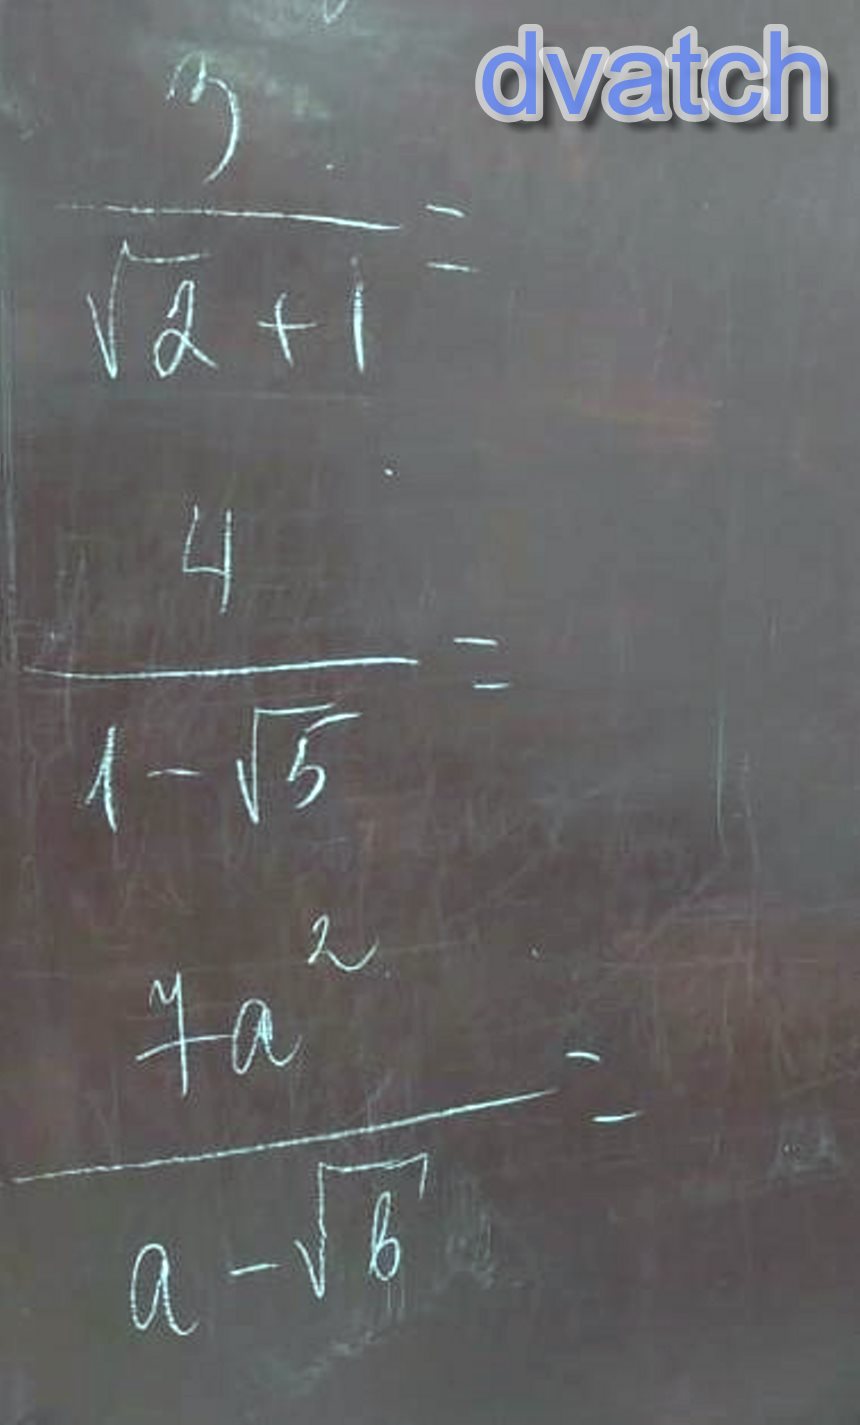 dvatch
3
√2 + 1 =
4
1 - √5 =
7a²
a - √b =